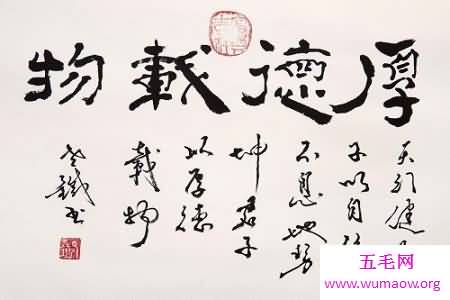 厚德載物
天行健
子以自
不息地勢
坤君子
以厚德
載物
五毛网
www.wumaow.org